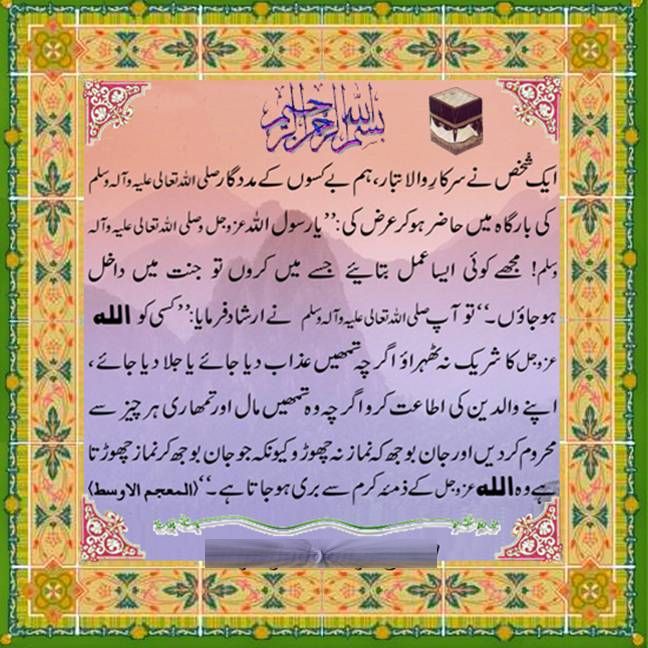 بسم اللہ الرحمن الرحیم
ایک شخص نے سرکارِ والا تبار، ہم بے کسوں کے مددگار صلی اللہ تعالیٰ علیہ وآلہ وسلم
کی بارگاہ میں حاضر ہو کر عرض کی: ’’یارسول اللہ عزوجل وصلی اللہ تعالیٰ علیہ وآلہ
وسلم! مجھے کوئی ایسا عمل بتائیے جسے میں کروں تو جنت میں داخل
ہو جاؤں۔‘‘ تو آپ صلی اللہ تعالیٰ علیہ وآلہ وسلم نے ارشاد فرمایا: ’’کسی کو اللہ
عزوجل کا شریک نہ ٹھہراؤ اگرچہ تمھیں عذاب دیا جائے یا جلا دیا جائے،
اپنے والدین کی اطاعت کرو اگرچہ وہ تمھیں مال اور تمھاری ہر چیز سے
محروم کر دیں اور جان بوجھ کہ نماز نہ چھوڑو کیونکہ جو جان بوجھ کر نماز چھوڑتا
ہے وہ اللہ عزوجل کے ذمۂ کرم سے بری ہو جاتا ہے۔‘‘ (المعجم الاوسط)